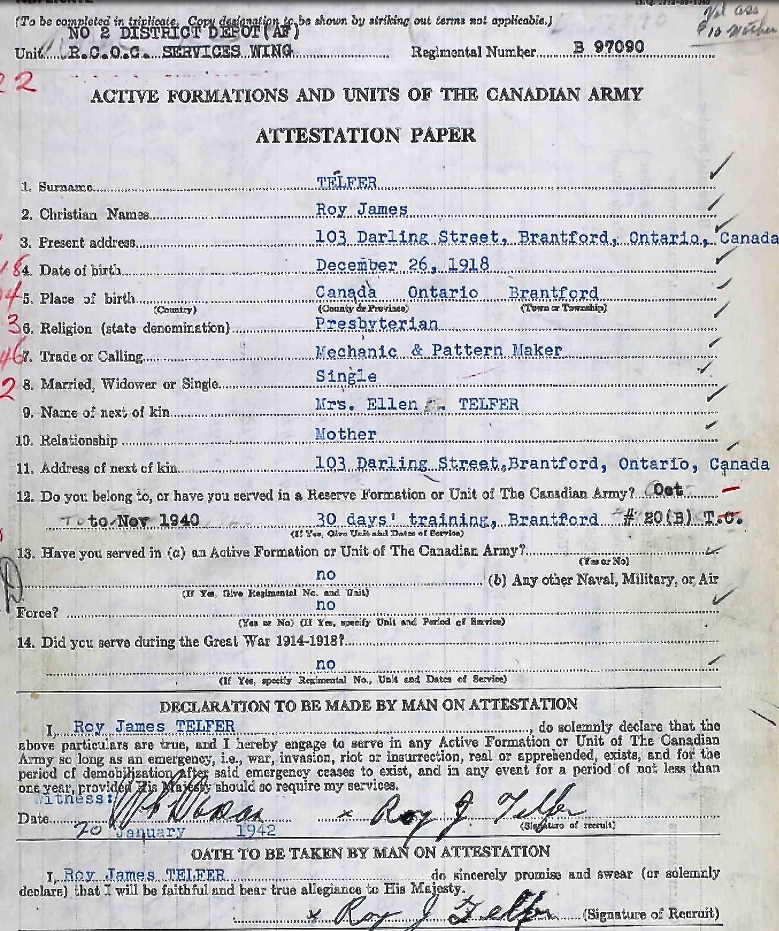 (To be completed in triplicate. Copy designation to be shown by striking out terms not applicable.)
NO 2 DISTRICT DEPOT(AF)
Unit R.C.O.C. SERVICES WING Regimental Number B 97090
ACTIVE FORMATIONS AND UNITS OF THE CANADIAN ARMY
ATTESTATION PAPER
1. Surname TELFER
2. Christian Names Roy James
3. Present address 103 Darling Street, Brantford, Ontario, Canada
4. Date of birth December 26, 1918
5. Place of birth Canada Ontario Brantford
(Country) (County or Province) (Town or Township)
6. Religion (state denomination) Presbyterian
7. Trade or Calling Mechanic & Pattern Maker
8. Married, Widower or Single Single
9. Name of next of kin Mrs. Ellen TELFER
10. Relationship Mother
11. Address of next of kin 103 Darling Street, Brantford, Ontario, Canada
12. Do you belong to, or have you served in a Reserve Formation or Unit of The Canadian Army? Oct
to Nov 1940 30 days' training, Brantford # 20(B) T.C.
(If Yes, Give Unit and Dates of Service)
13. Have you served in (a) an Active Formation or Unit of The Canadian Army?
(Yes or No)
no (b) Any other Naval, Military, or Air
(If Yes, Give Regimental No. and Unit)
Force? no
(Yes or No) (If Yes, specify Unit and Period of Service)
14. Did you serve during the Great War 1914-1918?
no
(If Yes, specify Regimental No., Unit and Dates of Service)
DECLARATION TO BE MADE BY MAN ON ATTESTATION
I, Roy James TELFER, do solemnly declare that the
above particulars are true, and I hereby engage to serve in any Active Formation or Unit of The Canadian
Army so long as an emergency, i.e., war, invasion, riot or insurrection, real or apprehended, exists, and for the
period of demobilisation after said emergency ceases to exist, and in any event for a period of not less than
one year, provided His Majesty should so require my services.
Witness:
Date x Roy J. Telfer
20 January 1942 (Signature of recruit)
OATH TO BE TAKEN BY MAN ON ATTESTATION
I, Roy James TELFER do sincerely promise and swear (or solemnly
declare) that I will be faithful and bear true allegiance to His Majesty.
x Roy J Telfer (Signature of Recruit)